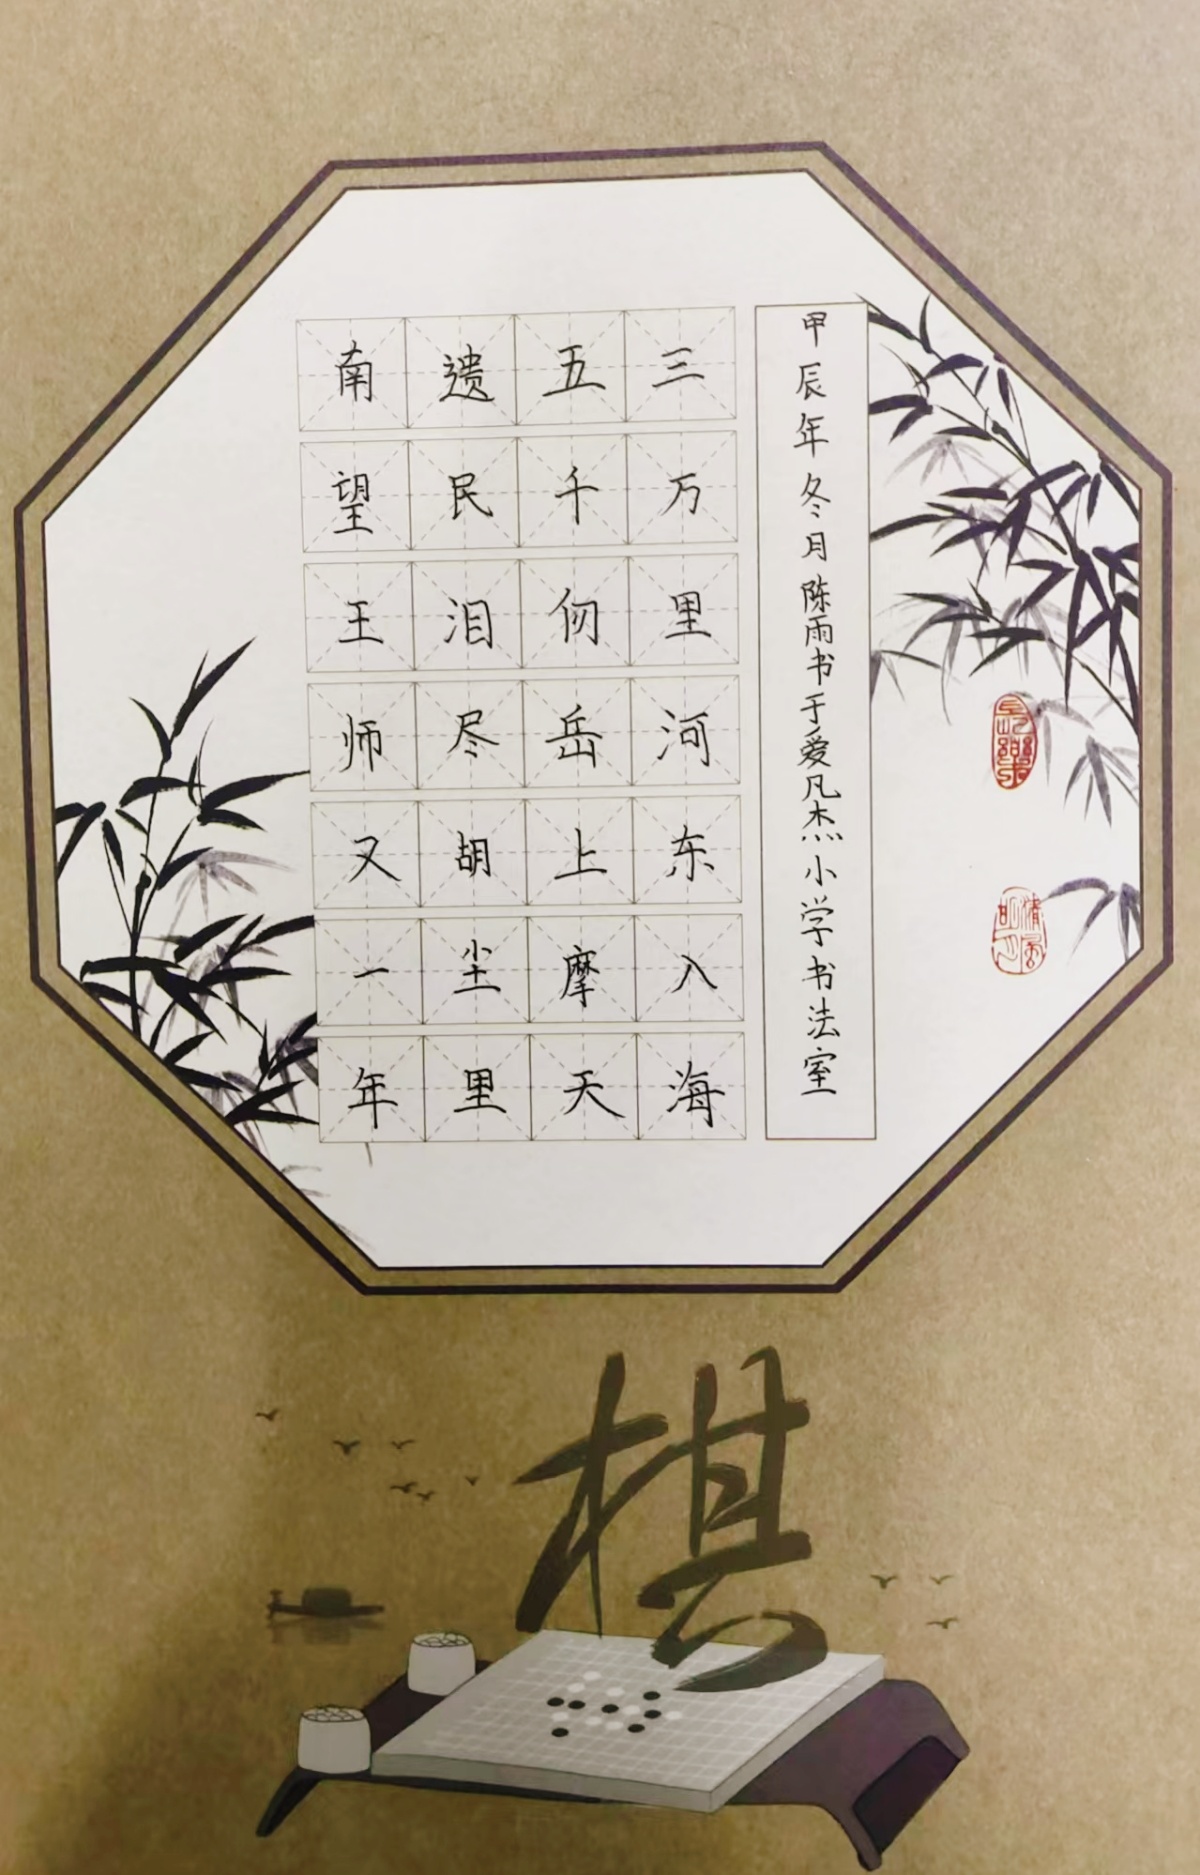 甲辰年冬月陈雨书于爱凡杰小学书法室
三万里河东入海
五千仞岳上摩天
遗民泪尽胡尘里
南望王师又一年
長樂
棋